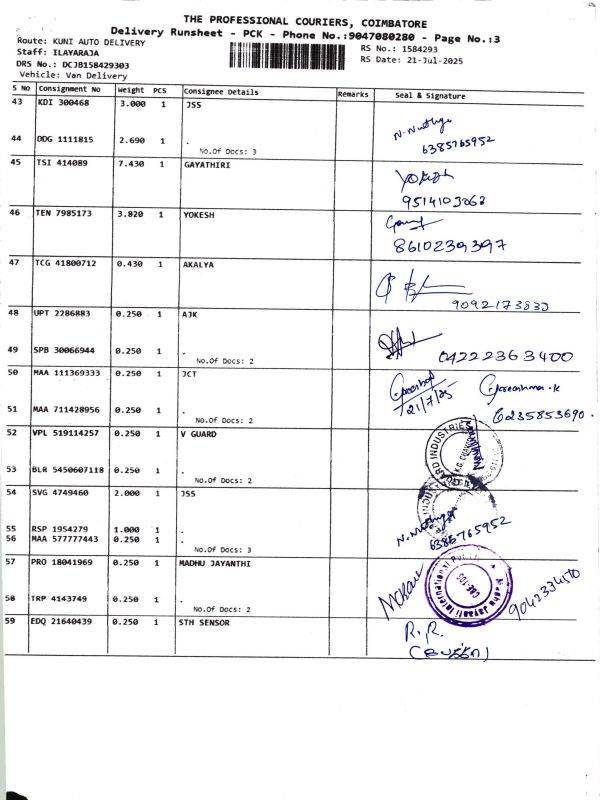 THE PROFESSIONAL COURIERS, COIMBATORE
Delivery Runsheet - PCK - Phone No.:9047080280 - Page No.:3
Route: KUNI AUTO DELIVERY
RS No.: 1584293
Staff: ILAYARAJA
RS Date: 21-Jul-2025
DRS No.: DCJB158429303
Vehicle: Van Delivery
S No Consignment No Weight PCS Consignee Details Remarks Seal & Signature
43 KDI 300468 3.000 1 JSS
N. Muthu
44 DDG 1111815 2.690 1 .
No.Of Docs: 3
6385765952
45 TSI 414089 7.430 1 GAYATHIRI
9514103062
46 TEN 7985173 3.820 1 YOKESH
8610239397
47 TCG 41800712 0.430 1 AKALYA
9092173833
48 UPT 2286883 0.250 1 AJK
49 SPB 30066944 0.250 1 .
04222363400
No.Of Docs: 2
50 MAA 111369333 0.250 1 JCT
Greeshma.K
21/7/25
51 MAA 711428956 0.250 1 .
6235853690.
No.Of Docs: 2
52 VPL 519114257 0.250 1 V GUARD
53 BLR 5450607118 0.250 1 .
No.Of Docs: 2
54 SVG 4749460 2.000 1 JSS
55 RSP 1954279 1.000 1 .
56 MAA 577777443 0.250 1 .
6385765952
No.Of Docs: 3
57 PRO 18041969 0.250 1 MADHU JAYANTHI
Madhu Jayanti International Pvt. Ltd.
CBE-105
9042334510
58 TRP 4143749 0.250 1 .
No.Of Docs: 2
59 EDQ 21640439 0.250 1 STH SENSOR
R.R.